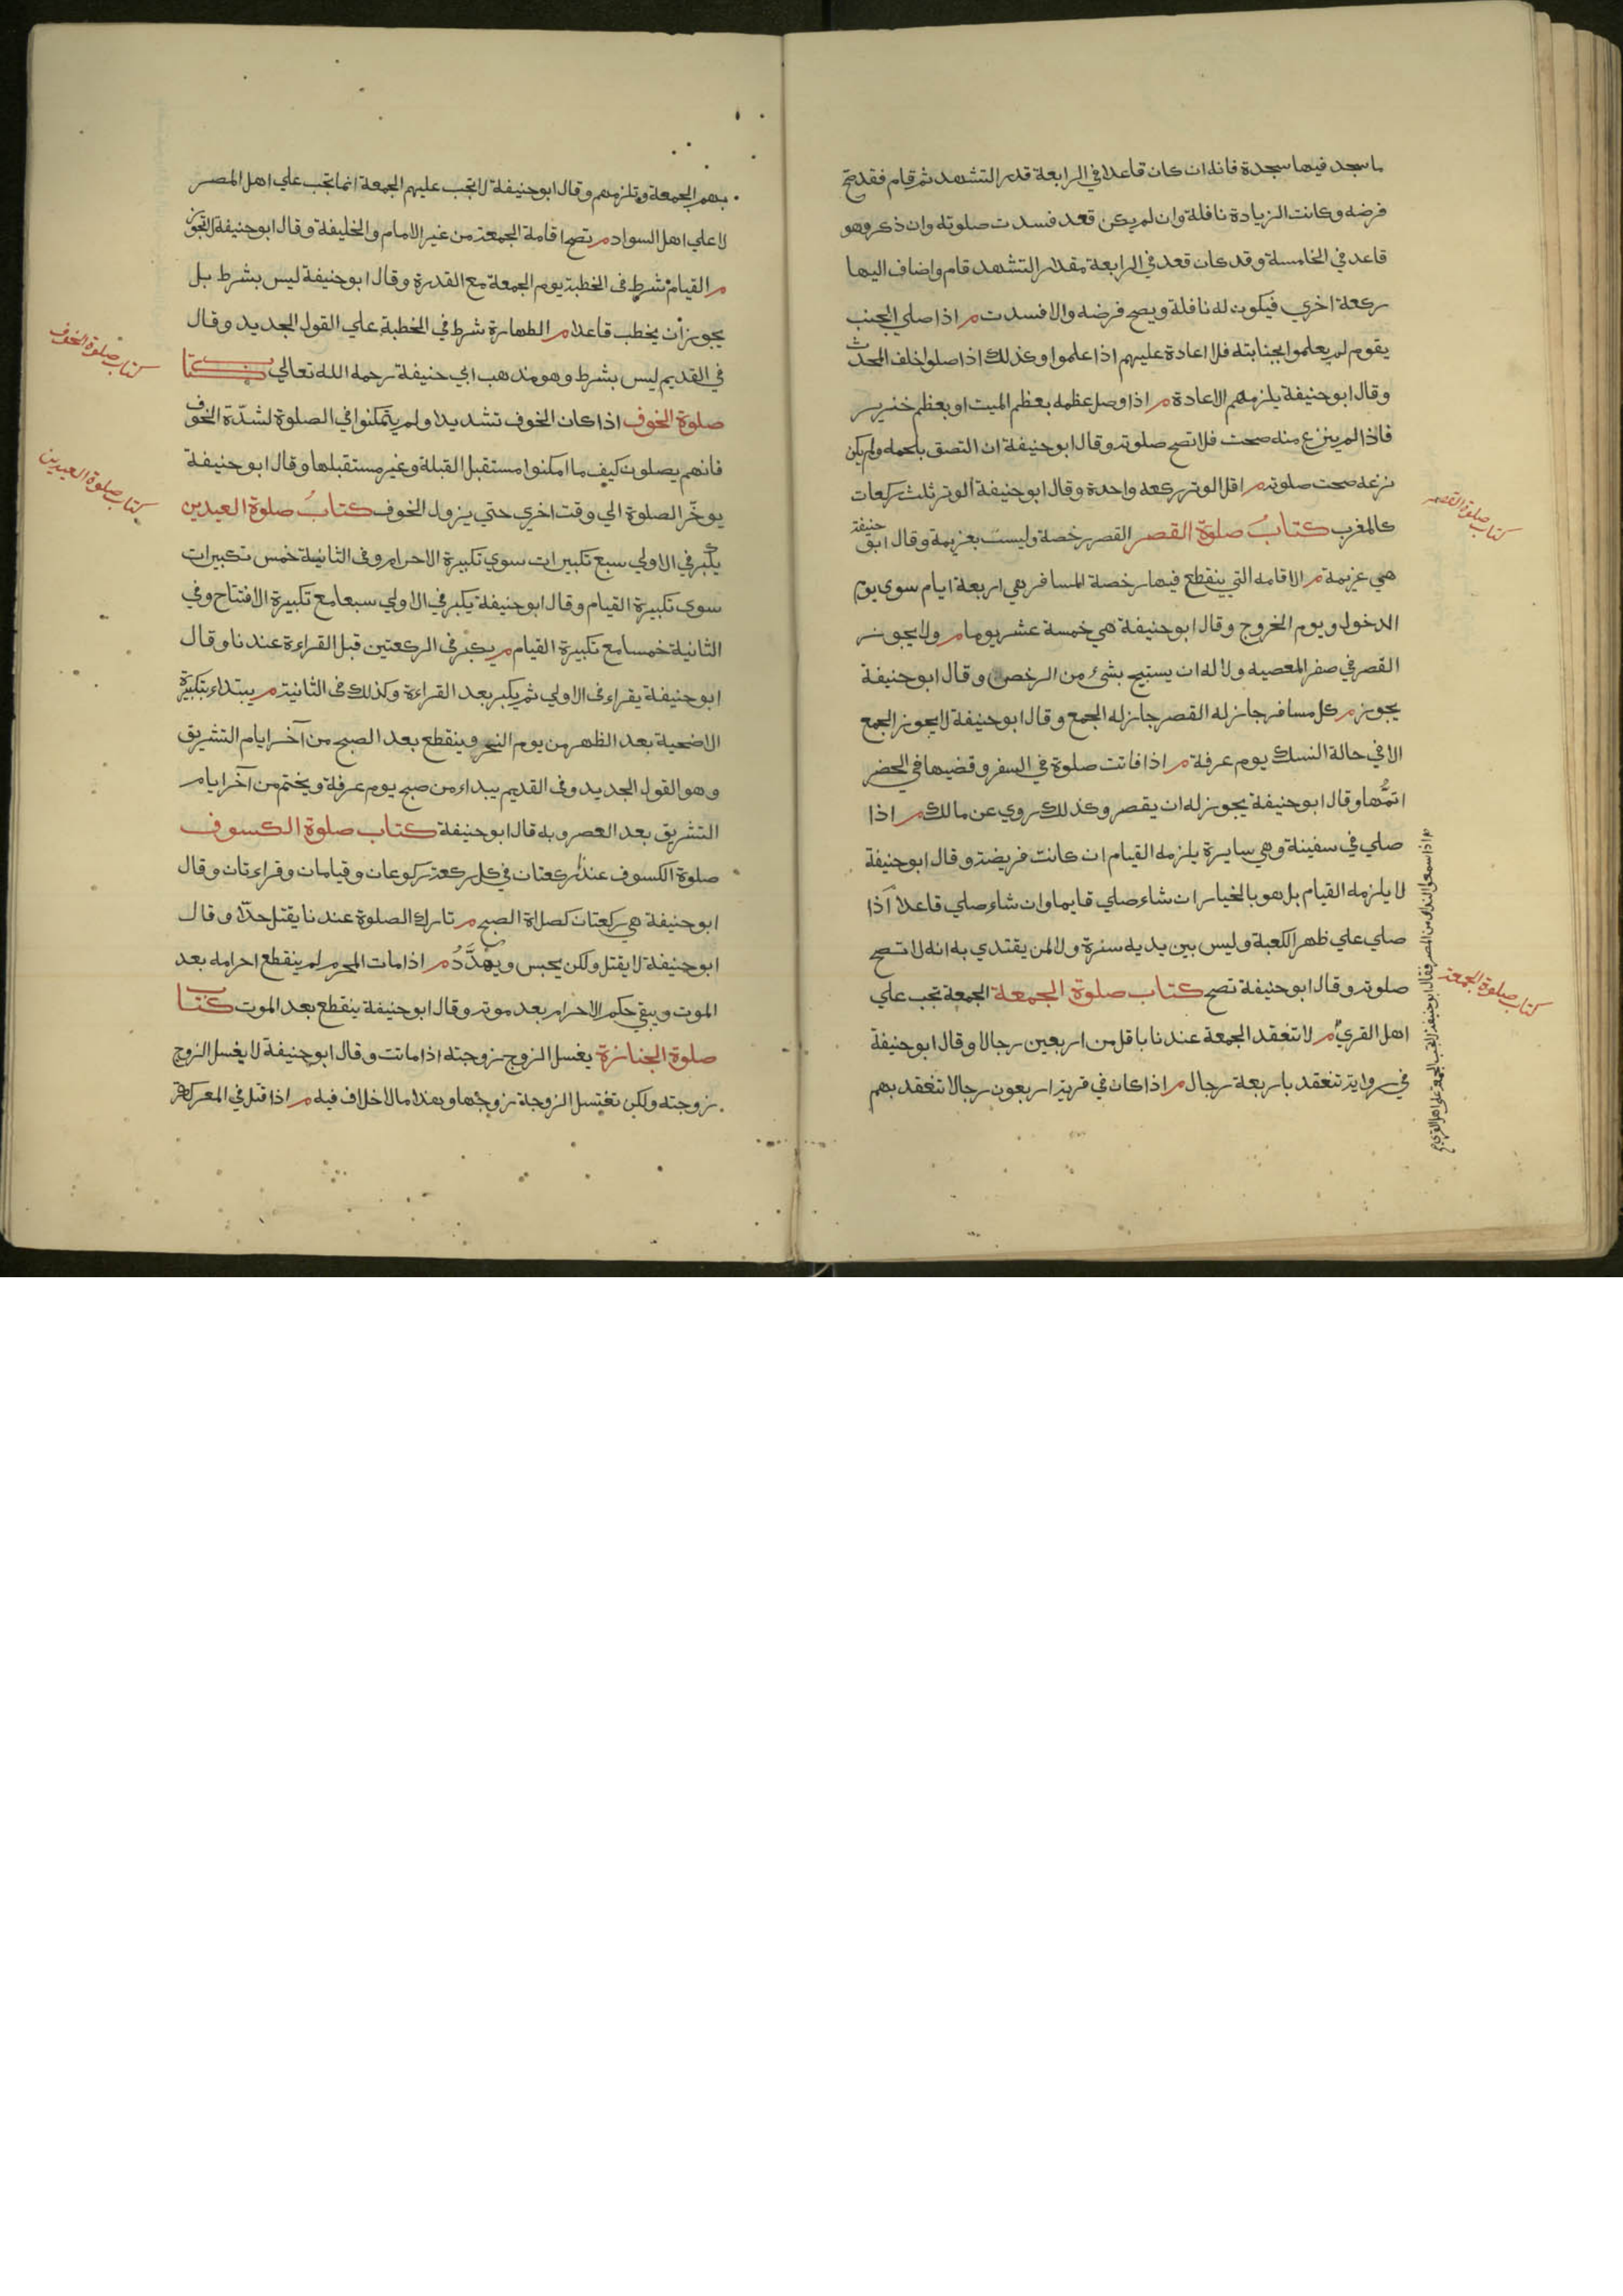 ما سجد فيها سجدة فانه ان كان قاعدا في الرابعة قدر التشهد ثم قام فقد صح
فرضه وكانت الزيادة نافلة وان لم يكن قعد فسدت صلوته وان ذكر وهو
قاعد في الخامسة وقد كان قعد في الرابعة مقدار التشهد قام واضاف اليها
ركعة اخري فيكون له نافلة ويصح فرضه والا فسدت م اذا صلي الجنب
بقوم لم يعلموا بجنابته فلا اعادة عليهم اذا علموا وكذلك اذا صلوا خلف المحدث
وقال ابو حنيفة يلزمهم الاعادة م اذا وصل عظمه بعظم الميت او بعظم خنزير
فاذا لم ينزع منه صحت فلا تصح صلوته وقال ابو حنيفة ان التصق بلحمه ولم يكن
نزعه صحت صلوته م اقل الوتر ركعه واحدة وقال ابو حنيفة الوتر ثلث ركعات
كالمغرب كتاب صلوة القصر القصر رخصة وليست بعزيمة وقال ابو حنيفة
هي عزيمة م الاقامه التي ينقطع فيها رخصة المسافر هي اربعة ايام سوي يوم
الدخول ويوم الخروج وقال ابو حنيفة هي خمسة عشر يوما م ولا يجوز
القصر في صفر المعصيه ولا له ان يستبيح بشئ من الرخص وقال ابو حنيفة
يجوز م كل مسافر جاز له القصر جاز له الجمع وقال ابو حنيفة لا يجوز الجمع
الا في حالة النسك يوم عرفة م اذا فاتت صلوة في السفر وقضيها في الحضر
اتمها وقال ابو حنيفة يجوز له ان يقصر وكذلك روي عن مالك م اذا
صلي في سفينة وهي سايرة يلزمه القيام ان كانت فريضة وقال ابو حنيفة
لا يلزمه القيام بل هو بالخيار ان شاء صلي قايما وان شاء صلي قاعدا اذا
صلي علي ظهر الكعبة وليس بين يديه سترة ولا لمن يقتدي به انه لا تصح
صلوته وقال ابو حنيفة تصح كتاب صلوة الجمعة الجمعة تجب علي
اهل القري م لا تنعقد الجمعة عندنا باقل من اربعين رجالا وقال ابو حنيفة
في رواية تنعقد باربعة رجال م اذا كان في قرية اربعون رجالا تنعقد بهم
كتاب صلوة القصر
كتاب صلوة الجمعة
م اذا سمعوا النداء من المصر فقال ابو حنيفة لا تجب الجمعة علي اهل القري
بهم الجمعة وتلزمهم وقال ابو حنيفة لا تجب عليهم الجمعة انما تجب علي اهل المصر
لا علي اهل السواد م تصح اقامة الجمعة من غير الامام والخليفة وقال ابو حنيفة لا تجوز
م القيام شرط في الخطبة يوم الجمعة مع القدرة وقال ابو حنيفة ليس بشرط بل
يجوز أن يخطب قاعدا م الطهارة شرط في الخطبة علي القول الجديد وقال
في القديم ليس بشرط وهو مذهب ابي حنيفة رحمه الله تعالي كتاب
صلوة الخوف اذا كان الخوف شديدا ولم يتمكنوا في الصلوة لشدّة الخوف
فانهم يصلون كيف ما امكنوا مستقبل القبلة وغير مستقبلها وقال ابو حنيفة
يوخّر الصلوة الي وقت اخري حتي يزول الخوف كتابُ صلوة العيدين
يكبر في الاولي سبع تكبيرات سوي تكبيرة الاحرام وفى الثانية خمس تكبيرات
سوي تكبيرة القيام وقال ابو حنيفة يكبر في الاولي سبعا مع تكبيرة الافتتاح وفي
الثانية خمسا مع تكبيرة القيام م يكبر في الركعتين قبل القراءة عندنا وقال
ابو حنيفة يقراء في الاولي ثم يكبر بعد القراءة وكذلك في الثانية م يبتداء بتكبيرة
الاضحية بعد الظهر من يوم النحر وينقطع بعد الصبح من آخر ايام التشريق
وهو القول الجديد وفي القديم يبداء من صبح يوم عرفة ويختم من آخر ايام
التشريق بعد العصر وبه قال ابو حنيفة كتاب صلوة الكسوف
صلوة الكسوف عندنا ركعتان في كل ركعة ركوعان وقيامان وقراءتان وقال
ابو حنيفة هي ركعتان كصلاة الصبح م تارك الصلوة عندنا يقتل حدّا وقال
ابو حنيفة لا يقتل ولكن يحبس ويهدَّدُ م اذا مات المحرم لم ينقطع احرامه بعد
الموت ويبقي حكم الاحرام بعد موته وقال ابو حنيفة ينقطع بعد الموت كتاب
صلوة الجنازة يغسل الزوج زوجته اذا ماتت وقال ابو حنيفة لا يغسل الزوج
زوجته ولكن تغتسل الزوجة زوجها وهذا مما لا خلاف فيه م اذا قتل في المعركة
كتاب صلوة الخوف
كتاب صلوة العيدين